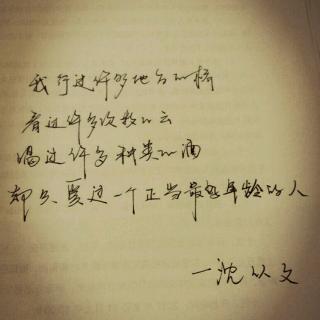 我行过许多地方的桥
看过许多次数的云
喝过许多种类的酒
却只爱过一个正当最好年龄的人
—沈从文